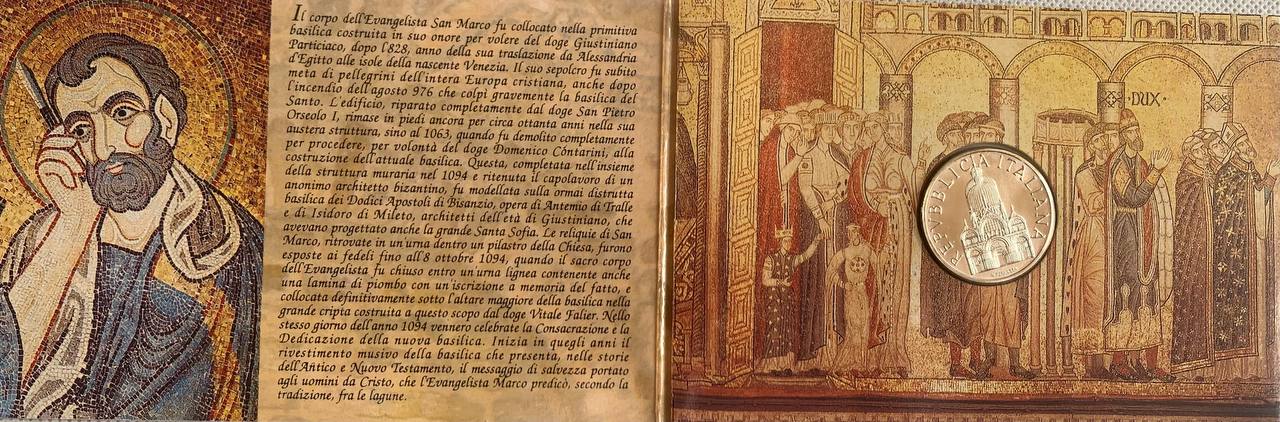 Il corpo dell'Evangelista San Marco fu collocato nella primitiva
basilica costruita in suo onore per volere del doge Giustiniano
Particiaco, dopo l'828, anno della sua traslazione da Alessandria
d'Egitto alle isole della nascente Venezia. Il suo sepolcro fu subito
meta di pellegrini dell'intera Europa cristiana, anche dopo
l'incendio dell'agosto 976 che colpì gravemente la basilica del
Santo. L'edificio, riparato completamente dal doge San Pietro
Orseolo I, rimase in piedi ancora per circa ottanta anni nella sua
austera struttura, sino al 1063, quando fu demolito completamente
per procedere, per volontà del doge Domenico Cóntarini, alla
costruzione dell'attuale basilica. Questa, completata nell'insieme
della struttura muraria nel 1094 e ritenuta il capolavoro di un
anonimo architetto bizantino, fu modellata sulla ormai distrutta
basilica dei Dodici Apostoli di Bisanzio, opera di Antemio di Tralle
e di Isidoro di Mileto, architetti dell'età di Giustiniano, che
avevano progettato anche la grande Santa Sofia. Le reliquie di San
Marco, ritrovate in un'urna dentro un pilastro della Chiesa, furono
esposte ai fedeli fino all'8 ottobre 1094, quando il sacro corpo
dell'Evangelista fu chiuso entro un'urna lignea contenente anche
una lamina di piombo con un'iscrizione a memoria del fatto, e
collocata definitivamente sotto l'altare maggiore della basilica nella
grande cripta costruita a questo scopo dal doge Vitale Falier. Nello
stesso giorno dell'anno 1094 vennero celebrate la Consacrazione e la
Dedicazione della nuova basilica. Inizia in quegli anni il
rivestimento musivo della basilica che presenta, nelle storie
dell'Antico e Nuovo Testamento, il messaggio di salvezza portato
agli uomini da Cristo, che l'Evangelista Marco predicò, secondo la
tradizione, fra le lagune.
·DUX·
REPVBBLICA ITALIANA